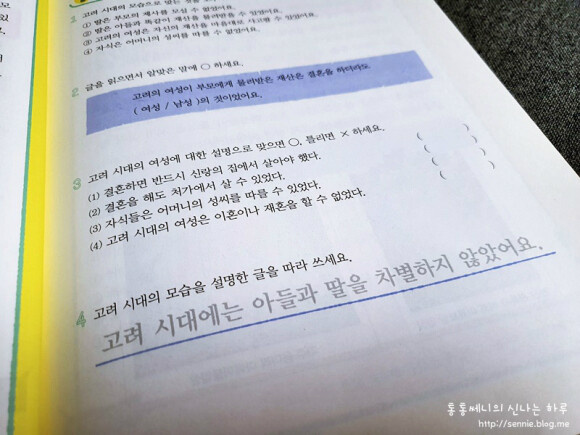 1 고려 시대의 모습으로 맞는 것을
① 딸은 부모의 제사를 모실 수 없었어요.
② 딸은 아들과 똑같이 재산을 물려받을 수 있었어요.
③ 고려의 여성은 자신의 재산을 마음대로 사고팔 수 있었어요.
④ 자식은 어머니의 성씨를 따를 수 없었어요.
2 글을 읽으면서 알맞은 말에 ○ 하세요.
고려의 여성이 부모에게 물려받은 재산은 결혼을 하더라도
( 여성 / 남성 )의 것이었어요.
3 고려 시대의 여성에 대한 설명으로 맞으면 ○, 틀리면 × 하세요.
(1) 결혼하면 반드시 신랑의 집에서 살아야 했다. ( )
(2) 결혼을 해도 처가에서 살 수 있었다. ( )
(3) 자식들은 어머니의 성씨를 따를 수 있었다. ( )
(4) 고려 시대의 여성은 이혼이나 재혼을 할 수 없었다. ( )
4 고려 시대의 모습을 설명한 글을 따라 쓰세요.
고려 시대에는 아들과 딸을 차별하지 않았어요.
통통쎄니의 신나는 하루
http://sennie.blog.me